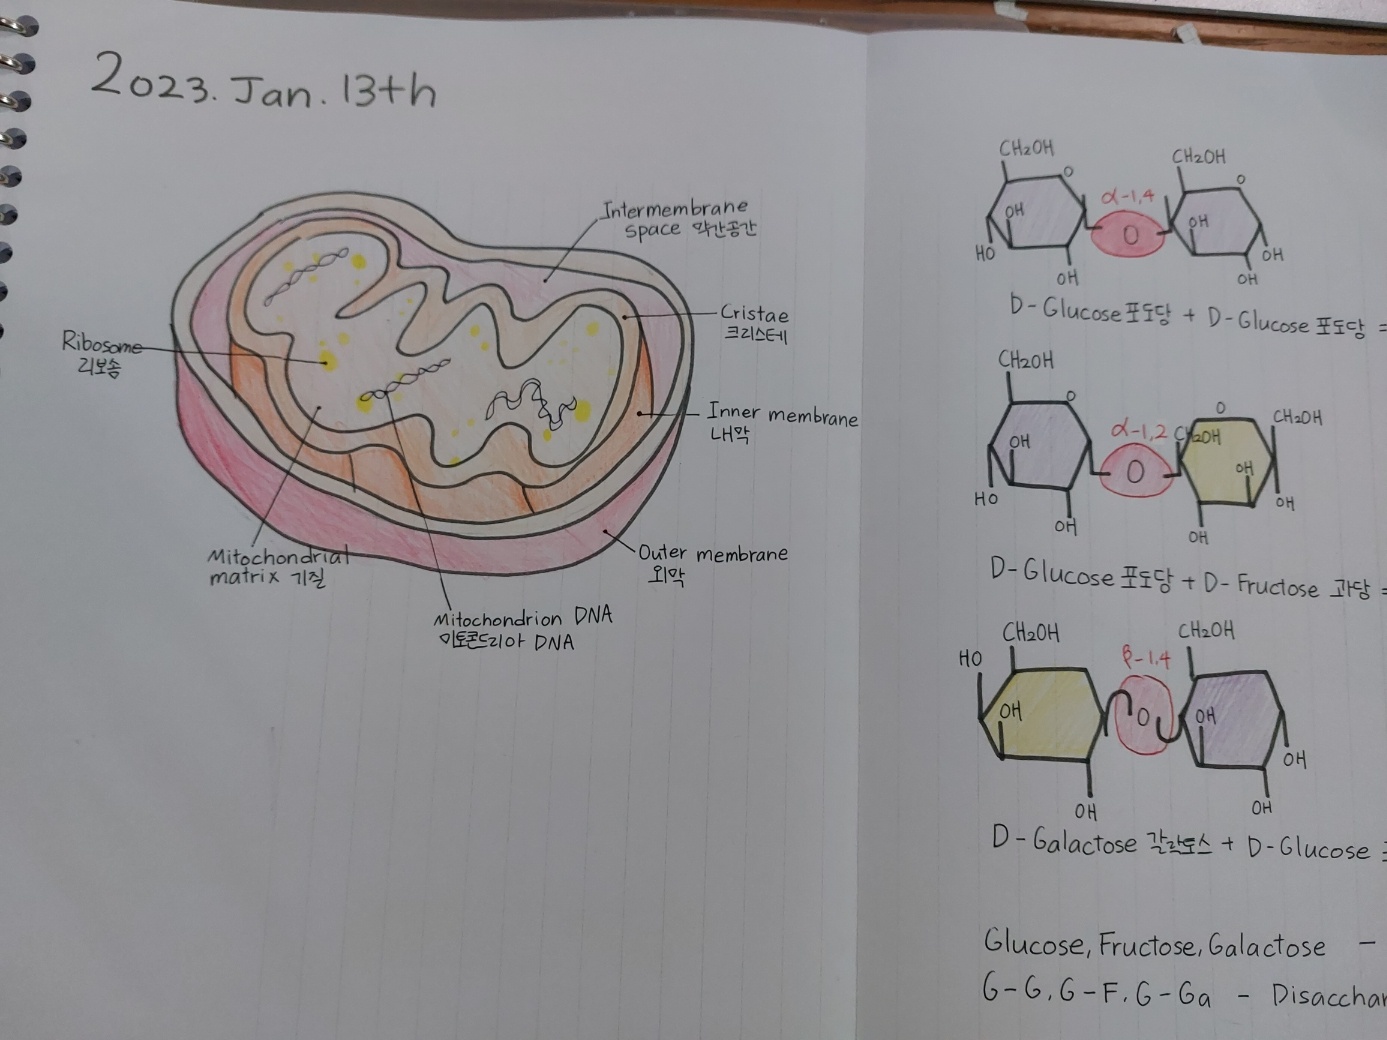 2023. Jan. 13th
Intermembrane
space 막간공간
Cristae
크리스테
Ribosome
리보솜
Inner membrane
내막
Mitochondrial
matrix 기질
Outer membrane
외막
Mitochondrion DNA
미토콘드리아 DNA
CH₂OH
CH₂OH
O
O
α-1,4
OH
O
OH
HO
OH
OH
OH
D-Glucose 포도당 + D-Glucose 포도당 =
CH₂OH
O
O
CH₂OH
α-1,2
CH₂OH
OH
O
OH
HO
OH
OH
OH
D-Glucose 포도당 + D-Fructose 과당 =
CH₂OH
CH₂OH
HO
β-1,4
OH
O
OH
OH
OH
OH
D-Galactose 갈락토스 + D-Glucose
Glucose, Fructose, Galactose -
G-G, G-F, G-Ga - Disacchar